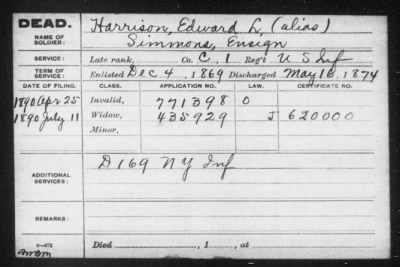 DEAD. Harrison, Edward L, (alias)
NAME OF SOLDIER: Simmons, Ensign
SERVICE: Late rank, Co. C, 1 Reg't U S Inf
TERM OF SERVICE: Enlisted Dec 4, 1869 Discharged May 16, 1874
DATE OF FILING. CLASS. APPLICATION NO. LAW. CERTIFICATE NO.
1890 Apr 25 Invalid, 771398 O
1890 July 11 Widow, 435929 J 620000
Minor,
D 169 N Y Inf
ADDITIONAL SERVICES:
REMARKS:
Died , 1 , at